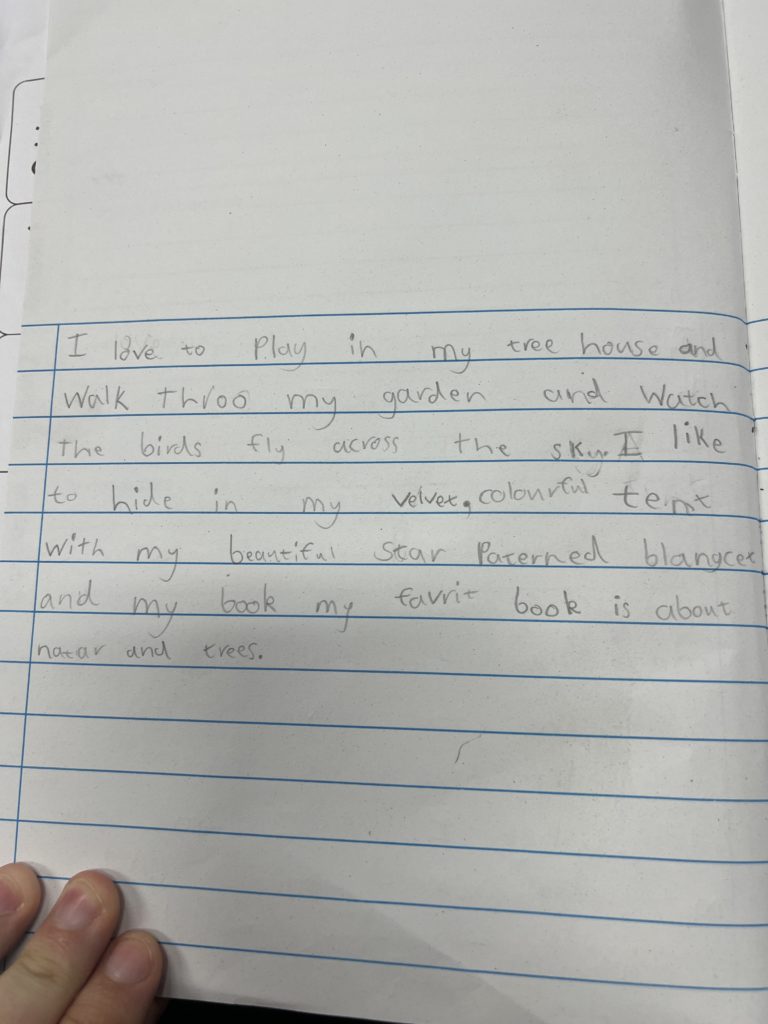 I love to Play in my tree house and
walk throo my garden and watch
the birds fly across the sky. I like
to hide in my velvet, colourful tent
with my beautiful star Paterned blangcet
and my book my favrit book is about
natar and trees.